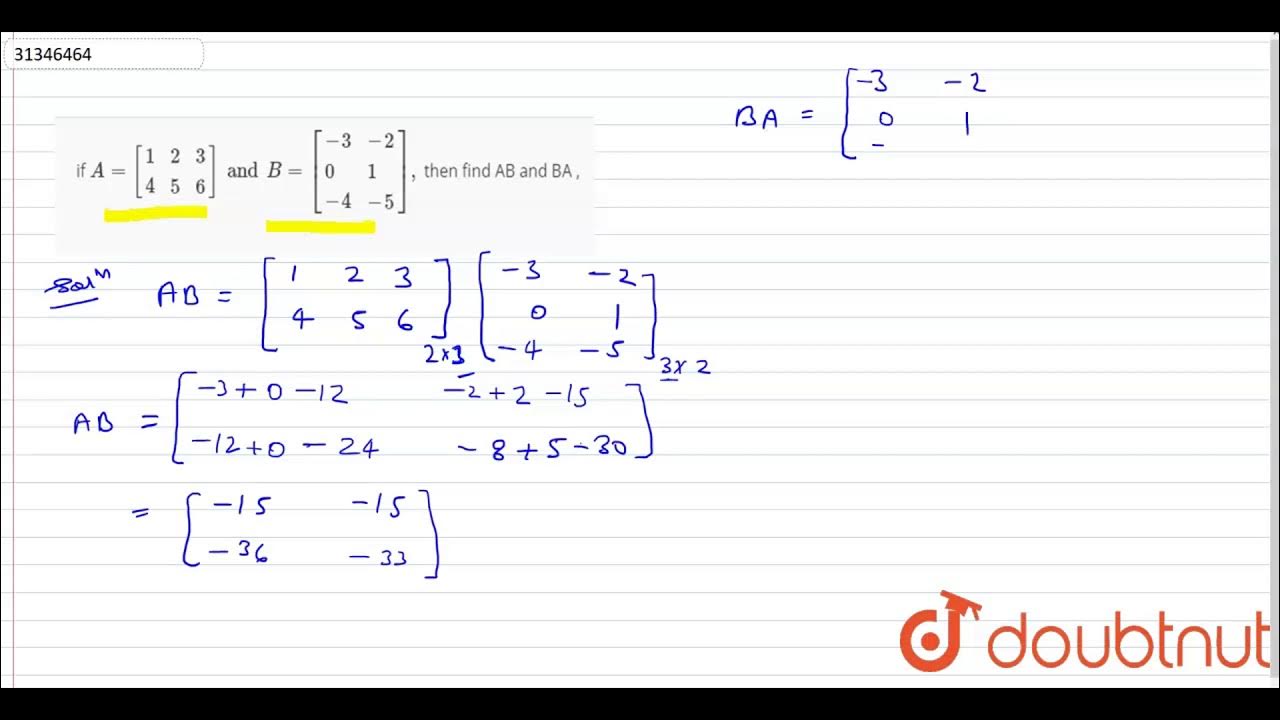 31346464
if A = [1 2 3
4 5 6] and B = [−3 −2
0 1
−4 −5], then find AB and BA ,
Solⁿ AB = [1 2 3
4 5 6] 2×3 [−3 −2
0 1
−4 −5] 3×2
AB = [−3+0−12 −2+2−15
−12+0−24 −8+5−30]
= [−15 −15
−36 −33]
BA = [−3 −2
0 1
−
doubtnut